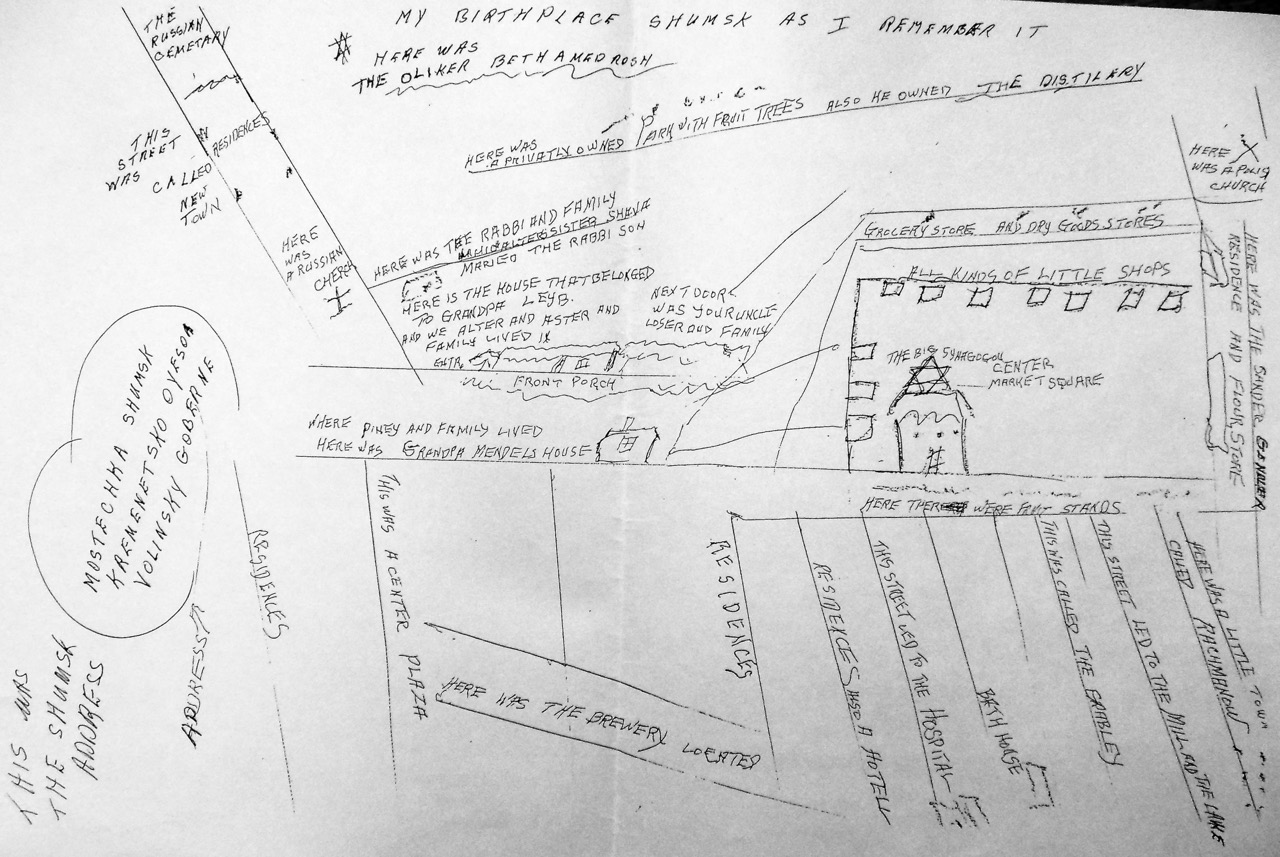 MY BIRTHPLACE SHUMSK AS I REMEMBER IT
THE
RUSSIAN
CEMETARY
HERE WAS
THE OLIKER BETHAMEDROSH
THIS
STREET
WAS
CALLED
NEW
TOWN
RESIDENCES
HERE WAS
A PRIVATLY OWNED
PARK WITH FRUIT TREES ALSO HE OWNED THE DISTILERY
HERE
WAS A POLISH
CHURCH
HERE
WAS
A RUSSIAN
CHERCH
HERE WAS THE RABBI AND FAMILY
ALTER SISTER SHEVA
MARIED THE RABBI SON
HERE IS THE HOUSE THAT BELONGED
TO GRANDPA LEYB.
AND WE ALTER AND ASTER AND
FAMILY LIVED IN
FRONT PORCH
NEXT DOOR
WAS YOUR UNCLE
LOSER AND FAMILY
GROCERY STORE AND DRY GOODS STORES
ALL KINDS OF LITTLE SHOPS
THE BIG SYNAGOGOU
CENTER
MARKET SQUARE
HERE WAS THE SANDER GENDLER
RESIDENCE AND FLOUR STORE
WHERE PINEY AND FAMILY LIVED
HERE WAS GRANDPA MENDELS HOUSE
HERE THERE WERE FRUIT STANDS
MOSTECHKA SHUMSK
KREMENETSKO OYESDA
VOLINSKY GOBERNE
ADDRESS
THIS WAS
THE SHUMSK
ADDRESS
RESIDENCES
THIS WAS A CENTER PLAZA
HERE WAS THE BREWERY LOCATED
RESIDENCES
RESIDENCES ALSO A HOTELL
THIS STREET LED TO THE HOSPITAL
BATH HOUSE
THIS WAS CALLED THE
THIS STREET LED TO THE MILL AND THE LAKE
HERE WAS A LITTLE TOWN
CALLED RACHMANOW